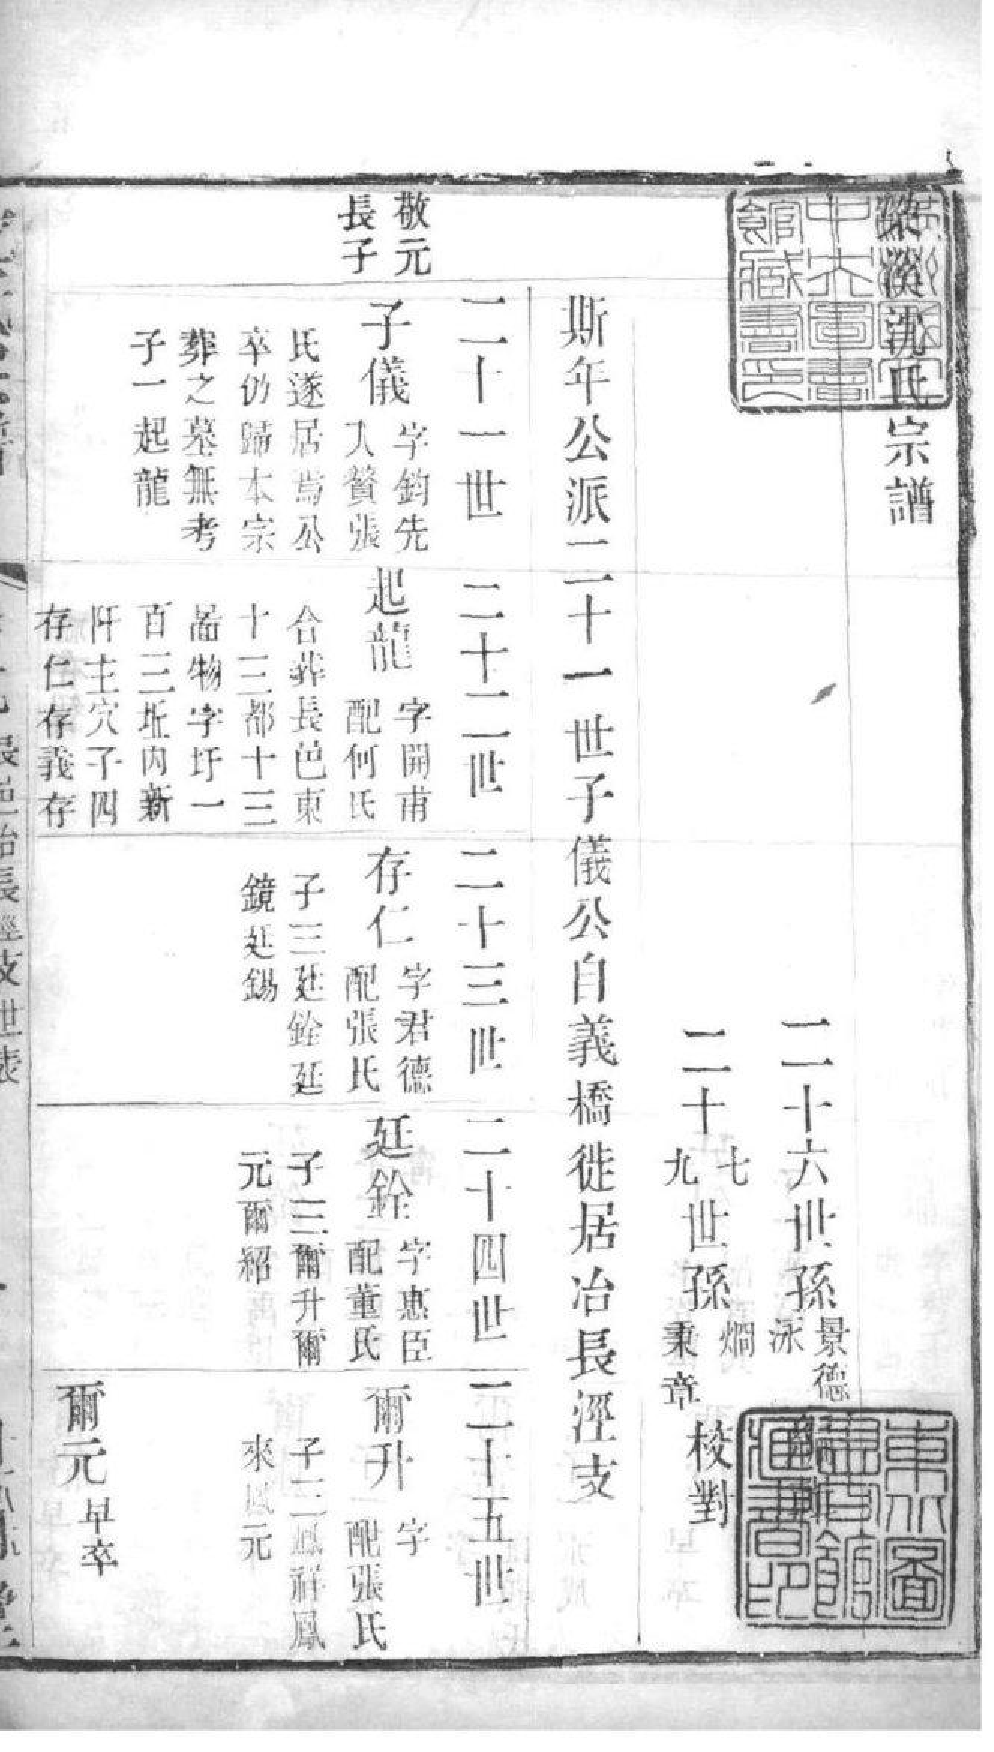 梁溪沈氏宗譜
二十六世孫景德
泳
二十七九世孫燗
秉章
校對
斯年公派二十一世子儀公自義橋徙居冶長涇支
二十一世
敬元
長子
子儀
字鈞先
入贅張
氏遂居焉公
卒仍歸本宗
葬之墓無考
子一起龍
二十二世
起龍
字開甫
配何氏
合葬長邑東
十三都十三
啚物字圩一
百三坵內新
阡主穴子四
存仁存義存
二十三世
存仁
字君德
配張氏
子三廷銓廷
鏡廷錫
二十四世
廷銓
字惠臣
配董氏
子三爾升爾
元爾紹
二十五世
爾升
字
配張氏
子二鳳祥鳳
來鳳元
爾元
早卒
長邑冶長涇支世表